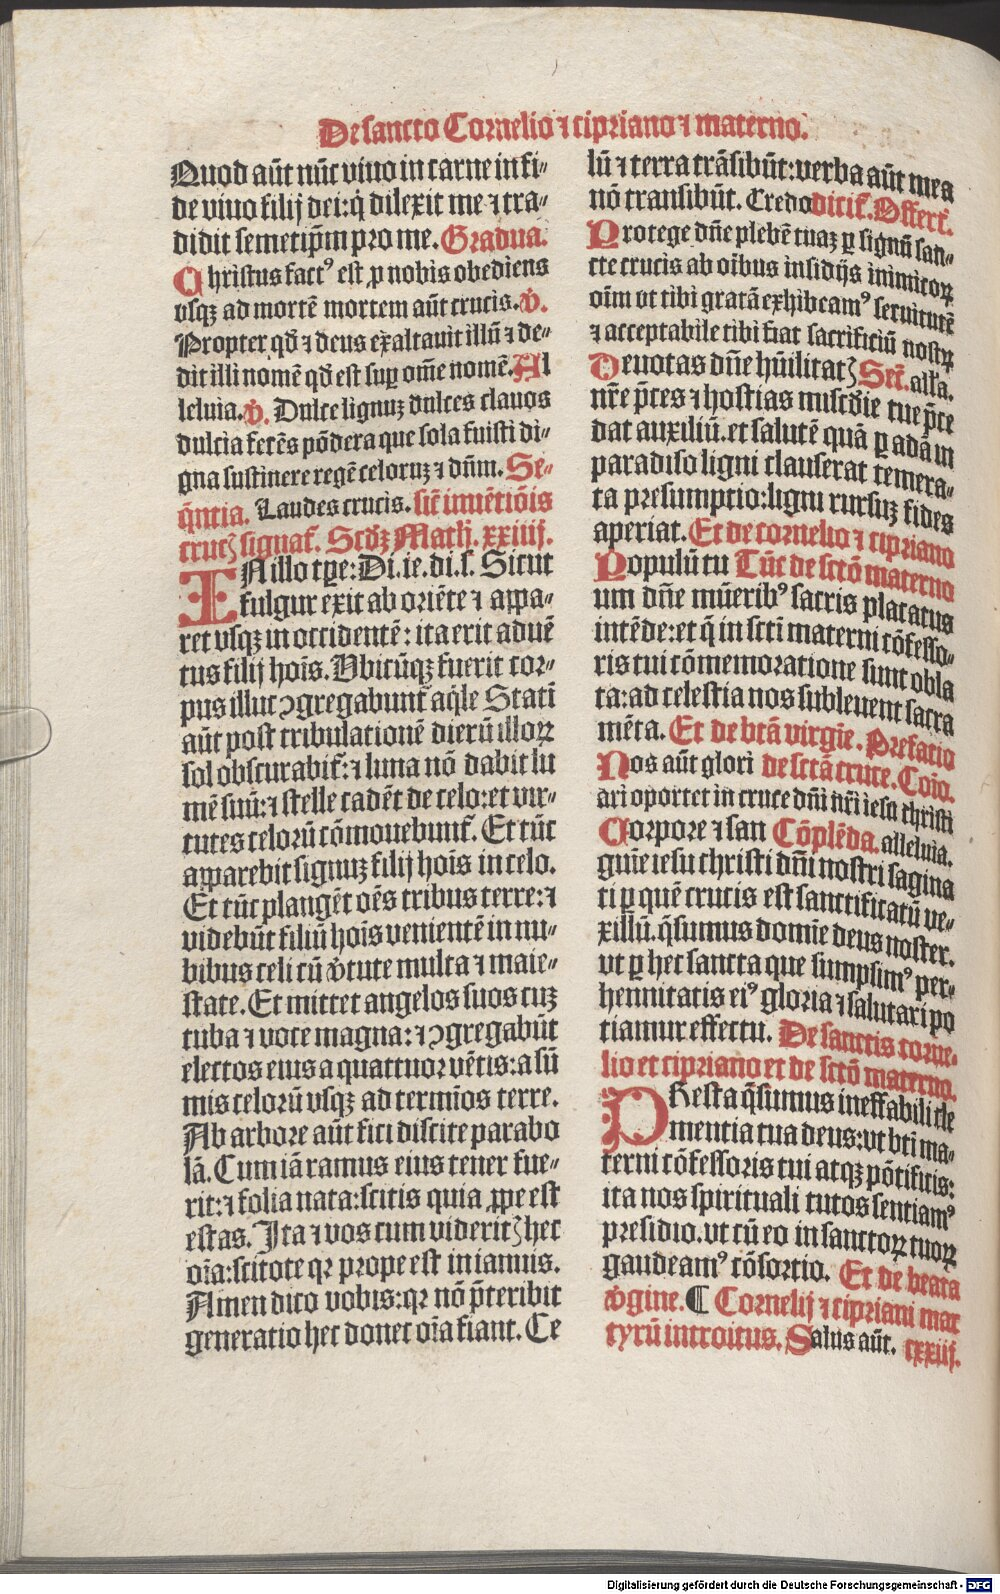 De sancto Cornelio ⁊ cipriano ⁊ materno.
Quod aūt nūc viuo in carne in fi⸗
de viuo filij dei: q̇ dilexit me ⁊ tra⸗
didit semetip̄m pro me. Gradua.
Christus factꝰ est ꝓ nobis obediens
vsqꝫ ad mortē mortem aūt crucis. V̇.
Propter qđ ⁊ deus exaltauit illū ⁊ de⸗
dit illi nomē qđ est suꝑ om̄e nomē. Al
leluia. V̇. Dulce lignuꝫ dulces clauos
dulcia ferēs pōdera que sola fuisti di⸗
gna sustinere regē celoruꝫ ⁊ dn̄m. Se⸗
q̄ntia. Laudes crucis. sic̄ inuētiōis
crucꝭ signat᷑. Scđꝫ Math. xxiiij.
IN illo tꝑe: Di. ie. di. s. Sicut
fulgur exit ab oriēte ⁊ appa⸗
ret vsqꝫ in occidentē: ita erit aduē
tus filij hoīs. Vbicūqꝫ fuerit cor⸗
pus illuc ꝯgregabunt᷑ aq̇le Statī
aūt post tribulationē dierū illoꝝ
sol obscurabit᷑: ⁊ luna nō dabit lu
mē suū: ⁊ stelle cadēt de celo: et vir⸗
tutes celorū cōmouebunt᷑. Et tūc
apparebit signuꝫ filij hoīs in celo.
Et tūc plangēt oēs tribus terre: ⁊
videbūt filiū hoīs venientē in nu⸗
bibus celi cū v̇tute multa ⁊ maie⸗
state. Et mittet angelos suos cuꝫ
tuba ⁊ voce magna: ⁊ ꝯgregabūt
electos eius a quattuor vētis: a sū
mis celorū vsqꝫ ad termīos terre.
Ab arbore aūt fici discite parabo
lā. Cum iā ramus eius tener fue⸗
rit: ⁊ folia nata: scitis quia ꝓpe est
estas. Ita ⁊ vos cum videritꝭ hec
oīa: scitote qꝛ prope est in ianuis.
Amen dico vobis: qꝛ nō p̄teribit
generatio hec donec oīa fiant. Ce
lū ⁊ terra trāsibūt: verba aūt mea
nō transibūt. Credo dicit᷑. Offert᷑.
Protege dn̄e plebē tuaꝫ ꝑ signū san⸗
cte crucis ab oībus insidijs inimicoꝝ
oīm vt tibi gratā exhibeamꝰ seruitutē
⁊ acceptabile tibi fiat sacrificiū nostꝝ
Deuotas dn̄e hūilitatꝭ Sec̄. alła.
nr̄e p̄ces ⁊ hostias misc̄die tue p̄ce
dat auxiliū. et salutē quā ꝑ adā in
paradiso ligni clauserat temera⸗
ta presumptio: ligni rursuꝫ fides
aperiat. Et de cornelio ⁊ cipriano
Populū tu Tūc de sctō materno
um dn̄e mūeribꝰ sacris placatus
intēde: et q̄ in scti materni cōfesso⸗
ris tui cōmemoratione sunt obla
ta: ad celestia nos subleuent sacra
mēta. Et de btā virgīe. Prefatio
Nos aūt glori de sctā cruce. Cōio.
ari oportet in cruce dn̄i nr̄i iesu christi
Corpore ⁊ san Cōplēda. alleluia.
guīe iesu christi dn̄i nostri sagina
ti ꝑ quē crucis est sanctificatū ve⸗
xillū. q̄sumus domīe deus noster.
vt ꝑ hec sancta que sumpsimꝰ per⸗
hennitatis eiꝰ gloria ⁊ salutari po
tiamur effectu. De sanctis corne⸗
lio et cipriano et de sctō materno.
PResta q̄sumus ineffabili cle
mentia tua deus: vt bti ma⸗
terni cōfessoris tui atqꝫ pōtificis:
ita nos spirituali tutos sentiamꝰ
presidio. vt cū eo in sanctoꝝ tuoꝝ
gaudeamꝰ cōsortio. Et de beata
v̇gine. ¶ Cornelij ⁊ cipriani mar
tyrū introitus. Salus aūt. cxxiij.
Digitalisierung gefördert durch die Deutsche Forschungsgemeinschaft - DFG